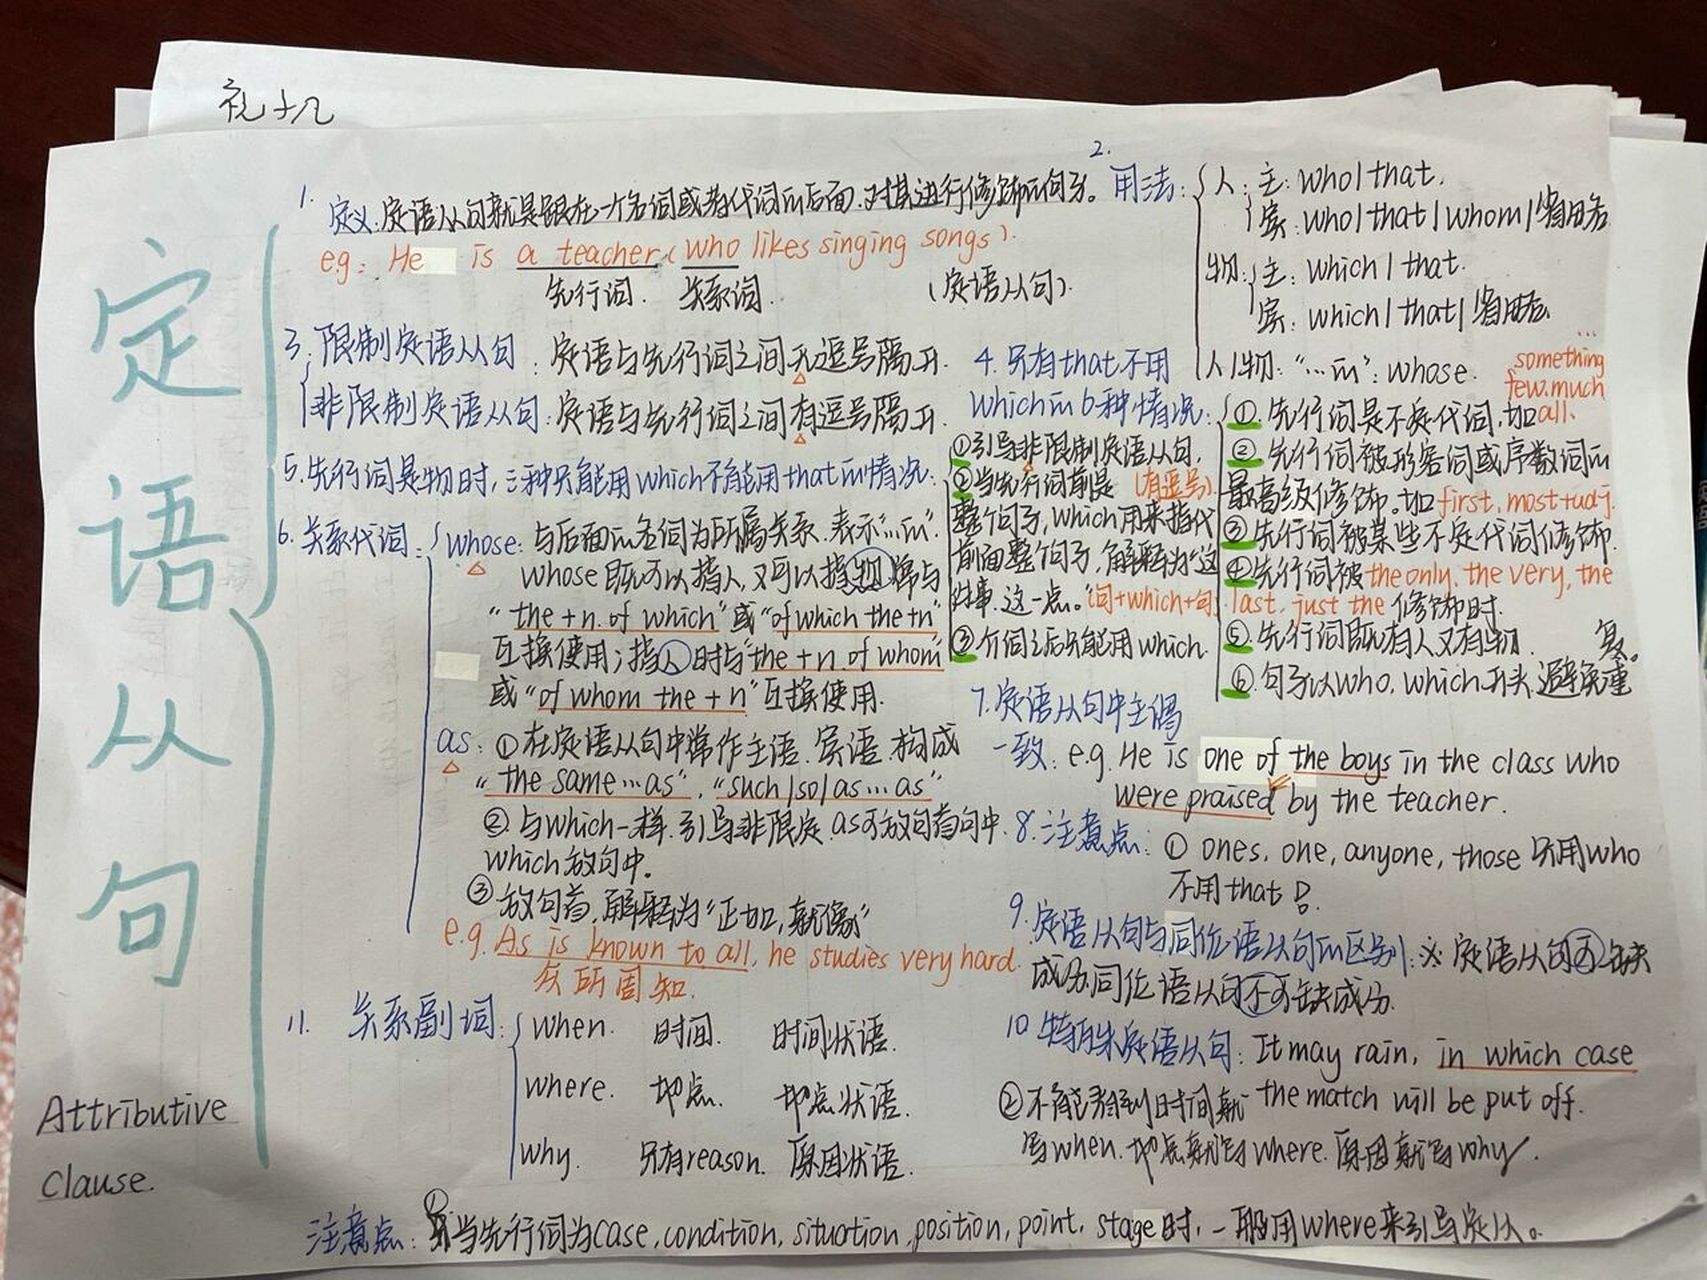 定语从句
Attributive
Clause.
1. 定义:定语从句就是跟在一个名词或者代词的后面.对其进行修饰的句子。
e.g: He is a teacher (who likes singing songs).
先行词. 关系词. (定语从句).
2. 用法:
人: 主: who|that.
宾: who|that|whom|省略
物: 主: which|that.
宾: which|that|省略.
人|物: "…的": whose.
3. 限制定语从句: 定语与先行词之间无逗号隔开.
非限制定语从句: 定语与先行词之间有逗号隔开.
4. 只有that不用
which的6种情况:
①. 先行词是不定代词,如all.
something
few.much
...
②. 先行词被形容词或序数词的
最高级修饰.如first, most+adj.
③先行词被某些不定代词修饰.
④先行词被the only, the very, the
last, just the修饰时.
⑤. 先行词既有人又有物.
⑥. 句子以who, which开头.避免重
复。
5.先行词是物时,三种只能用which不能用that的情况:
①引导非限制定语从句.
(有逗号).
②当先行词前是
整个句子,which用来指代
前面整个句子,解释为"这
件事.这一点。"(句+which+句
③介词之后只能用which.
6. 关系代词:
whose: 与后面的名词为所属关系.表示"…的".
whose既可以指人,又可以指物.常与
"the+n. of which"或"of which the+n"
互换使用;指人时与"the+n. of whom
或"of whom the+n"互换使用.
as: ①在定语从句中常作主语.宾语.构成
"the same…as", "such|so|as…as"
②.与which一样.引导非限定.as可放句首句中.
which放句中。
③放句首,解释为"正如,就像"
e.g. As is known to all, he studies very hard.
众所周知.
7.定语从句中主谓
一致: e.g. He is one of the boys in the class who
were praised by the teacher.
8.注意点: ① ones, one, anyone, those 只用who
不用that!
9.定语从句与同位语从句的区别:※定语从句可缺
成分.同位语从句不可缺成分.
10 特殊定语从句: It may rain, in which case
the match will be put off.
②不能看到时间就
写when.地点就写where.原因就写why.
11. 关系副词:
when. 时间. 时间状语.
where. 地点. 地点状语.
why. 只有reason. 原因状语.
注意点: ①当先行词为case, condition, situation, position, point, stage时,一般用where来引导定从。